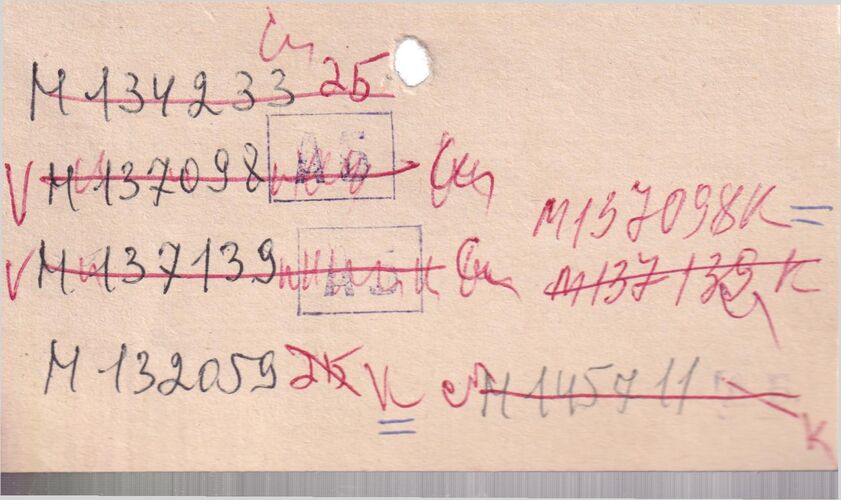 Сп
М 134233 2Б
V М 137098 АБ Сп
М137098К
V М 137139 АБ Сп
М137139 К
М 132059 2Б К
М 145711
К